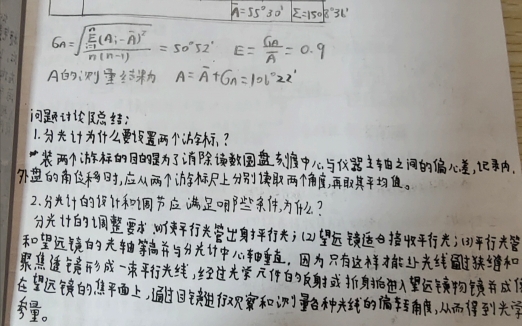 Ā=55°30′ Σ=1508°36′
G_A=√(Σ(Aᵢ-Ā)²/n(n-1)) = 50°52′ E = G_A/Ā = 0.9
A的测量结果为 A=Ā+G_A=106°22′
问题讨论及总结:
1.分光计为什么要设置两个游标?
装两个游标的目的是为了消除读数圆盘刻度中心与仪器主轴之间的偏心差,记录内
外盘的角位移时,应从两个游标尺上分别读取两个角度,再取其平均值。
2.分光计的设计和调节应满足哪些条件,为什么?
分光计的调整要求 (1)使平行光管出射平行光;(2)望远镜适合接收平行光;(3)平行光管
和望远镜的光轴等高并与分光计中心轴垂直。因为只有这样才能让光线通过狭缝和
聚焦透镜形成一束平行光线,经过光学元件的反射或折射后进入望远镜物镜并成像
在望远镜的焦平面上,通过目镜进行观察和测量各种光线的偏转角度,从而得到光学
参量。